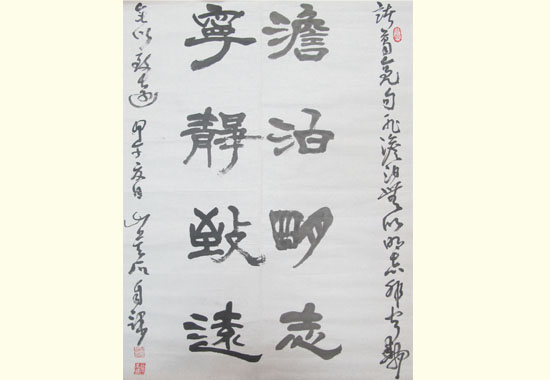 諸葛亮句非澹泊無以明志非寧靜
澹泊明志
寧靜致遠
無以致遠 甲午夏日